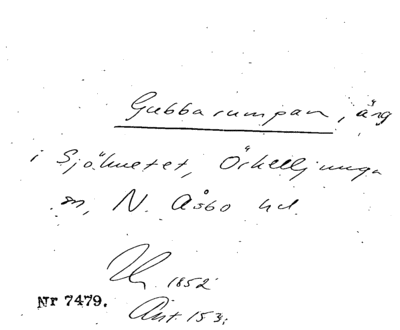 Gubbarumpan, äng
i Sjöhuetet, Örkelljunga
sn, N. Åsbo hd.
1852
Nr 7479.
Ant. 153;